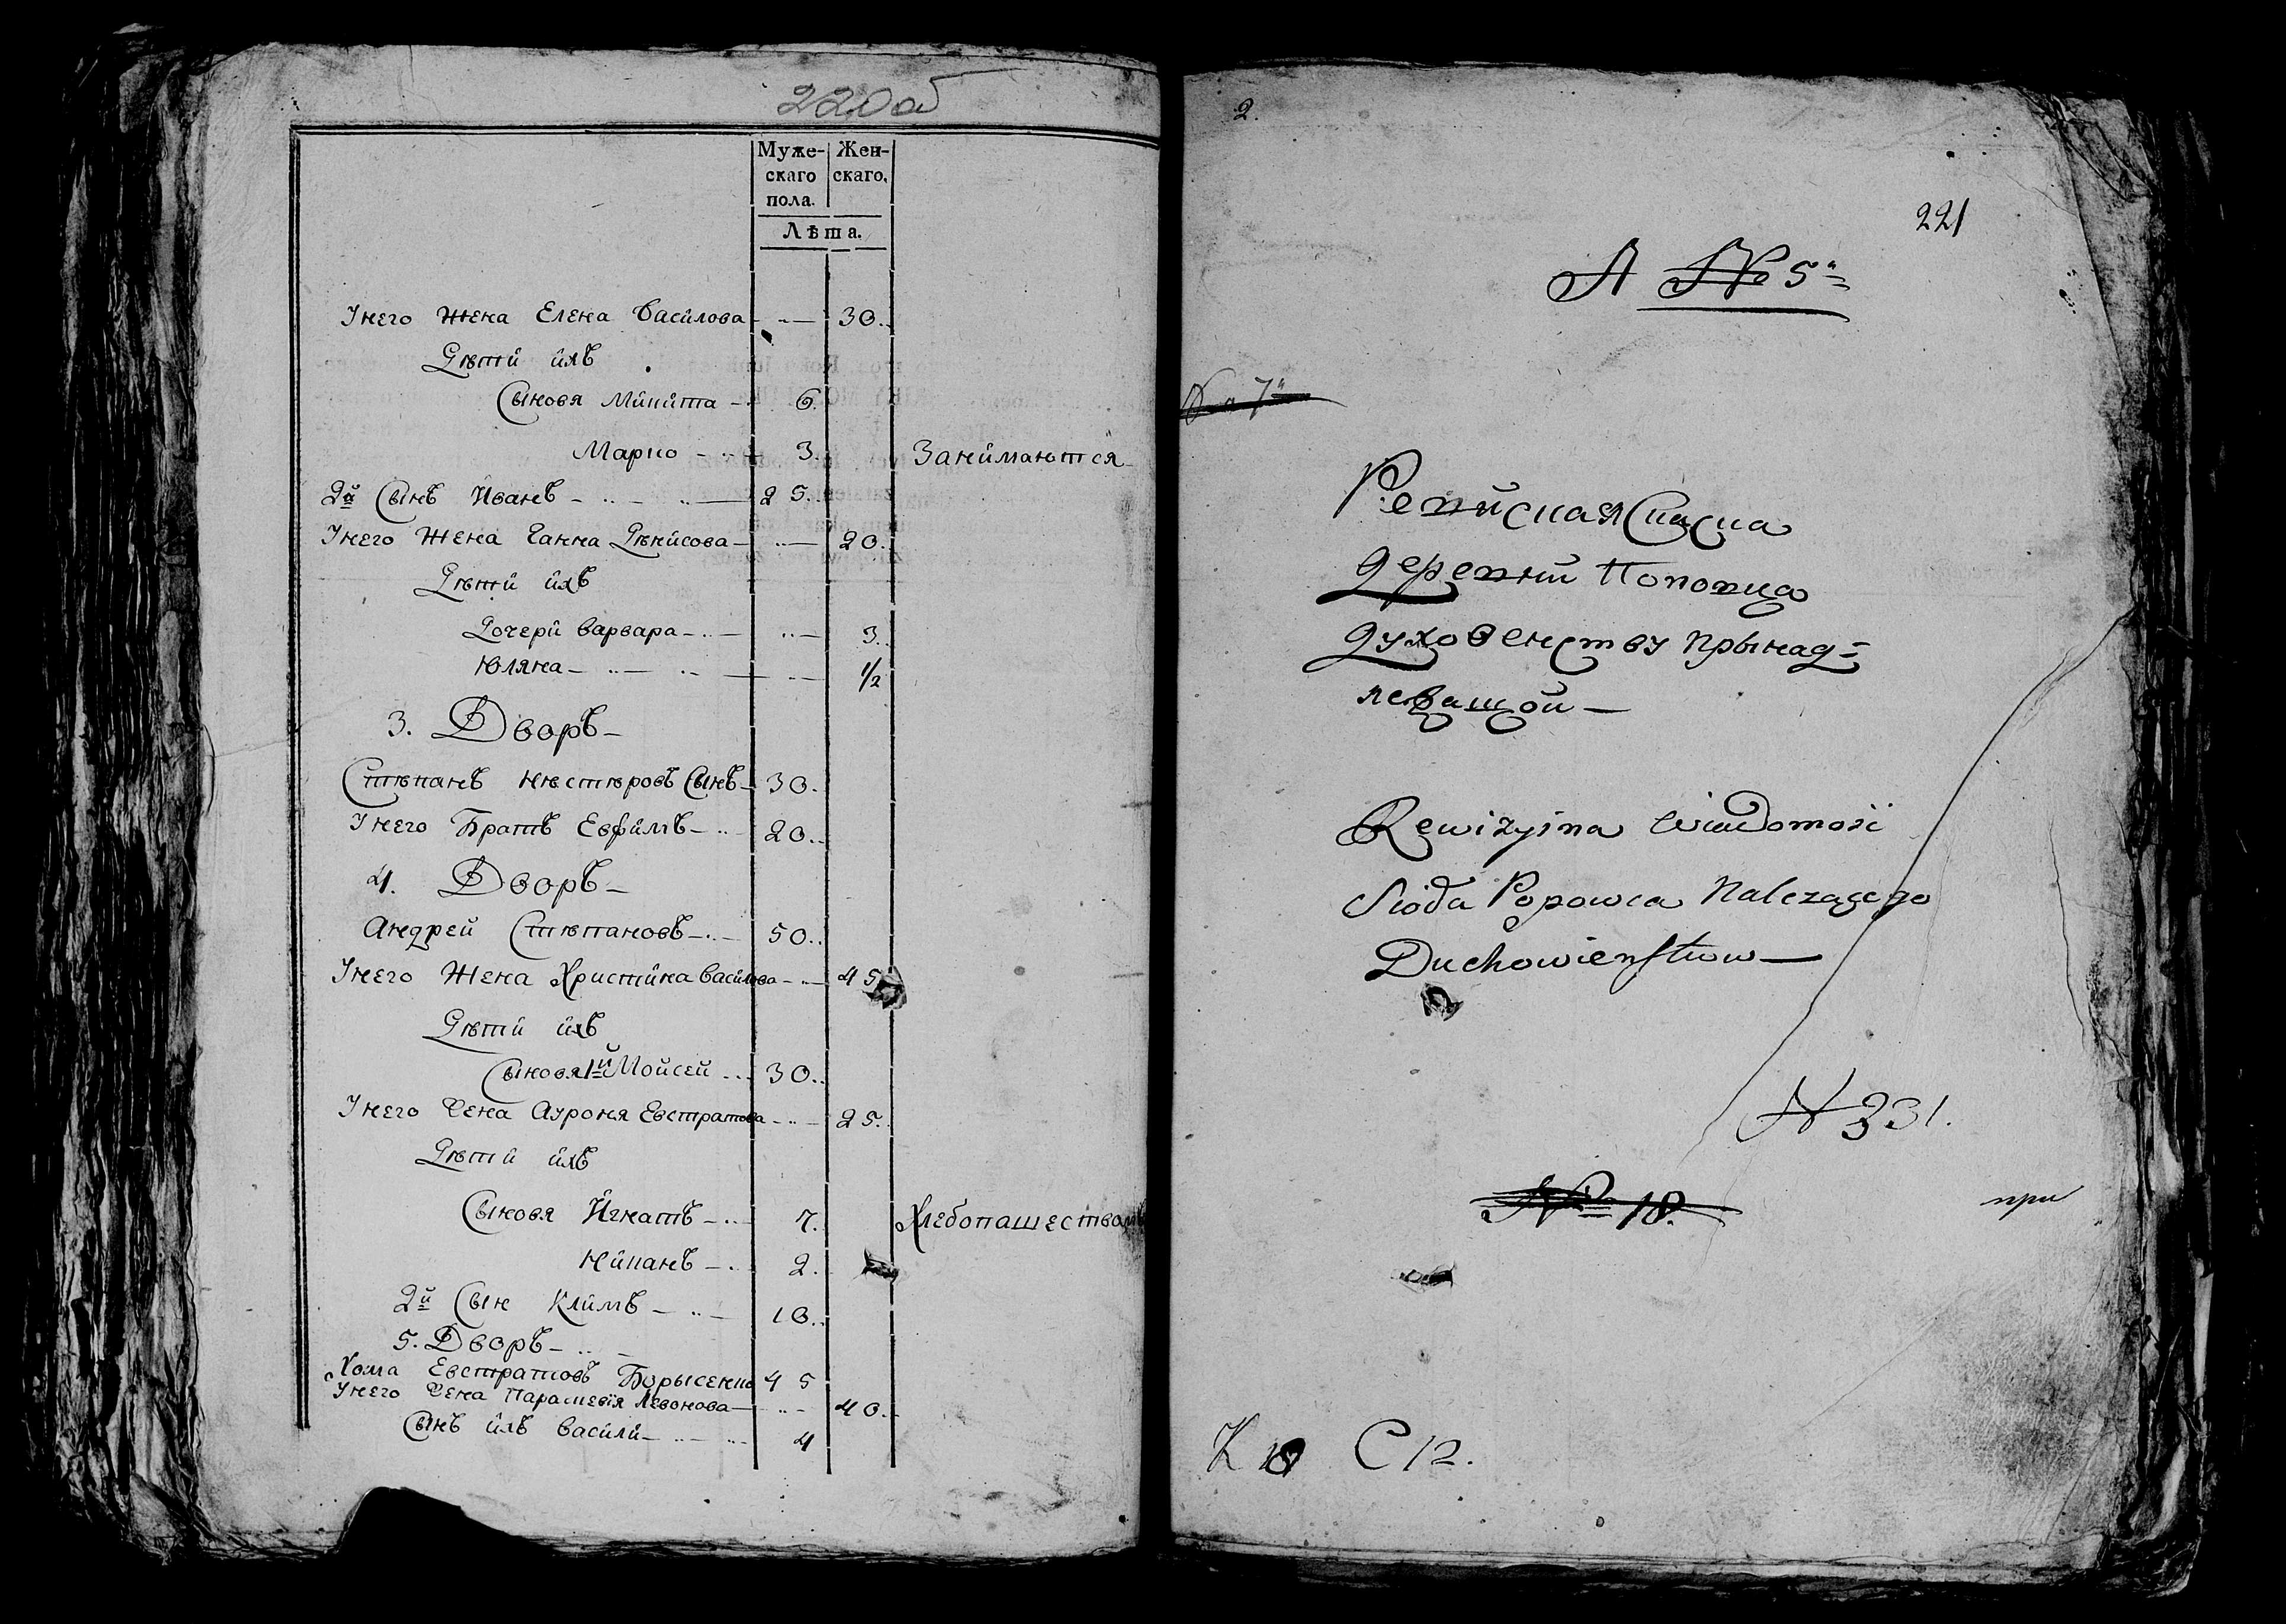 220об
Муже- Жен-
скаго скаго.
пола.
Лѣта.
Унего Жена Елена Василова - ..— 30..
Дѣти ихъ
Сыновя Микита - 6.
Марко - .. 3. Занимаются
2й Сынъ Иванъ - .. - .. — 25..
Унего Жена Ганна Дѣнисова — ..— 20.
Дѣти ихъ
Дочери Варвара - .. — ..— 3..
Юляна - .. — .. — .. — 1/2
3. Дворъ -
Стѣпанъ Нѣстѣровъ Сынъ - 30.
Унего Братъ Евфимъ - .. 20..
4. Дворъ -
Андрей Стѣпановъ - .. - 50..
Унего Жена Христина Василова - .. — 45
Дѣти ихъ
Сыновя 1й Мойсей - .. 30..
Унего Жена Агроня Евстратова - .. — 25.
Дѣти ихъ
Сыновя Игнатъ - .. 7. Хлебопашествомъ
Кипанъ - .. 2.
2й Сын Климъ - .. — 10..
5. Дворъ - ..
Хома Евстратовъ Борысенко 45
Унего Жена Параскевія Левонова — .. — 40..
Сынъ ихъ Васили - .. — .. 4
2.
221
А № 5"
7"
Ревийская Скаска
деревни Поповца
духовенству прынад=
лежащой —
Rewizyina Wiadomość
Sioła Popowca Należącego
Duchowieństwu —
N 331.
№ 18.
при
К 18 С 12.